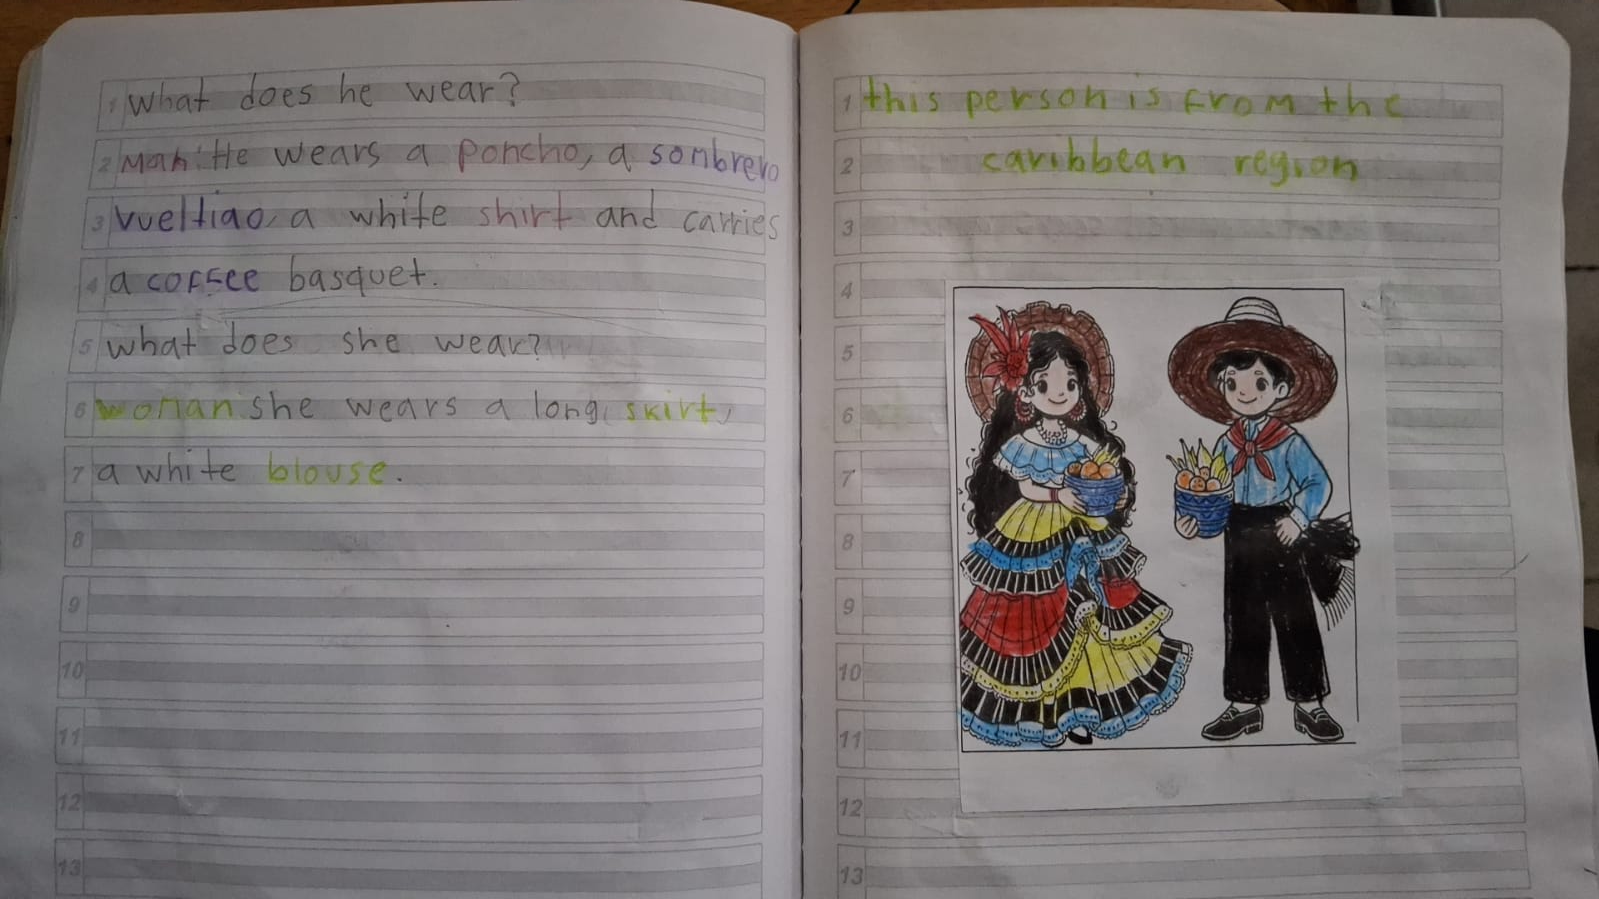 1 What does he wear?
2 Man: He wears a poncho, a sombrero
3 vueltiao, a white shirt and carries
4 a coffee basquet.
5 what does she wear?
6 woman she wears a long skirt,
7 a white blouse.
8
9
10
11
12
13
1 this person is from the
2 caribbean region
3
4
5
6
7
8
9
10
11
12
13